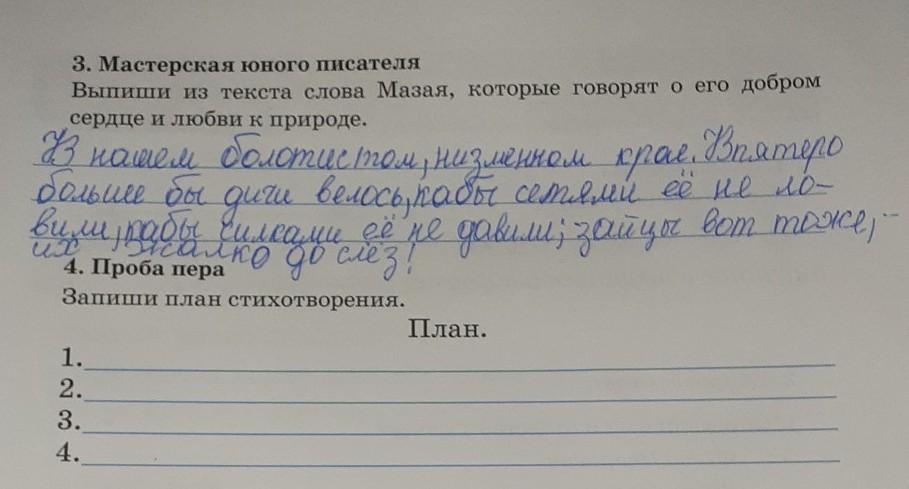 3. Мастерская юного писателя
Выпиши из текста слова Мазая, которые говорят о его добром
сердце и любви к природе.
В нашем болотистом, низменном крае. Впятеро
больше бы дичи велось, кабы сетями её не ло-
вили, кабы силками её не давили; зайцы вот тоже, -
их жалко до слёз!
4. Проба пера
Запиши план стихотворения.
План.
1.
2.
3.
4.